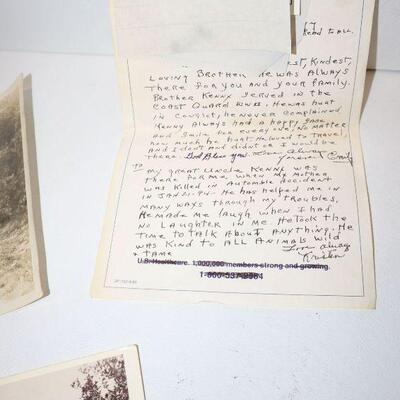 Read to ALL.
est, Kindest,
Loving Brother He was Always
There for you and your family.
Brother Kenny served in the
Coast Guard WWII. He was hurt
in Conflict, he never complained
Kenny Always had a happy face
and smile for every one, No matter
how much he hurt. He loved to travel,
and I don't and didn't or I would be
there. God Bless you. Love Always
To
My great Uncle Kenny was
There for me when my Mother
was Killed in Automble Accident
in JAN 21-94- He has helped me in
many ways through my troubles.
He made me laugh when I had
no laughter in me He took the
time to talk about anything. He
was kind to all animals wild
+ tame Love always
Kristen
U.S. Healthcare. 1,000,000 members strong and growing.
1-800-537-9384